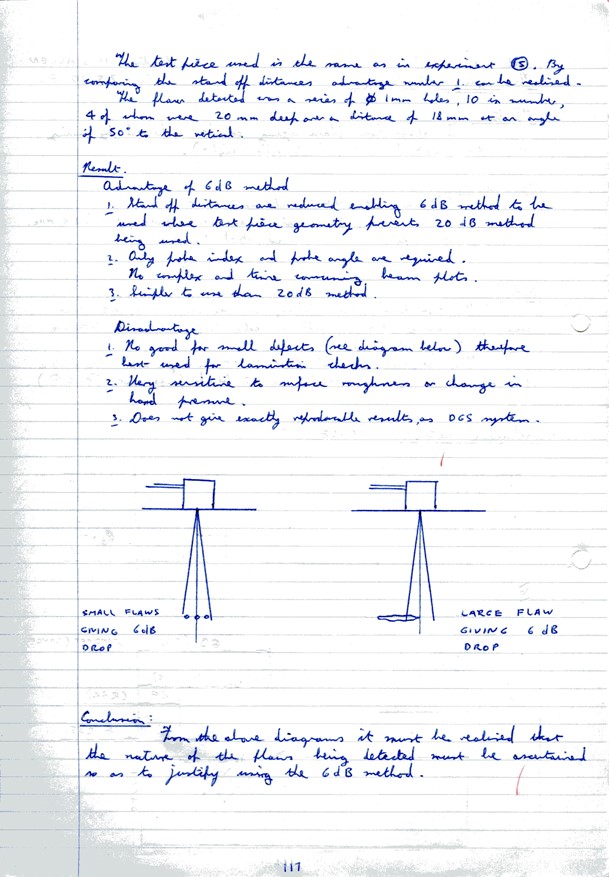 The test piece used is the same as in experiment (15). By
comparing the stand off distances advantage number 1. can be realised.
The flaw detected was a series of ϕ 1mm holes, 10 in number,
4 of whom were 20 mm deep over a distance of 18 mm at an angle
of 50° to the vertical.
Result.
Advantage of 6 dB method
1. Stand off distances are reduced enabling 6 dB method to be
used where test piece geometry prevents 20 dB method
being used.
2. Only probe index and probe angle are required.
No complex and time consuming beam plots.
3. Simpler to use than 20 dB method.
Disadvantage
1. No good for small defects (see diagram below) therefore
best used for lamination checks.
2. Very sensitive to surface roughness or change in
hand pressure.
3. Does not give exactly reproducable results, as DGS system.
SMALL FLAWS
GIVING 6dB
DROP
LARGE FLAW
GIVING 6 dB
DROP
Conclusion:
From the above diagrams it must be realised that
the nature of the flaws being detected must be ascertained
so as to justify using the 6 dB method.
117